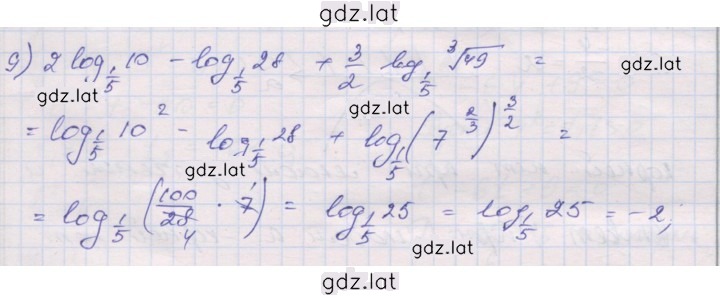 gdz.lat
g) 2 log_{1/5} 10 - log_{1/5} 28 + 3/2 log_{1/5} ∛49 =
gdz.lat gdz.lat
= log_{1/5} 10² - log_{1/5} 28 + log_{1/5} (7^{2/3})^{3/2} =
gdz.lat gdz.lat
= log_{1/5} (100/28 · 7) = log_{1/5} 25 = log_{1/5} 25 = -2;
4 1
gdz.lat gdz.lat
gdz.lat